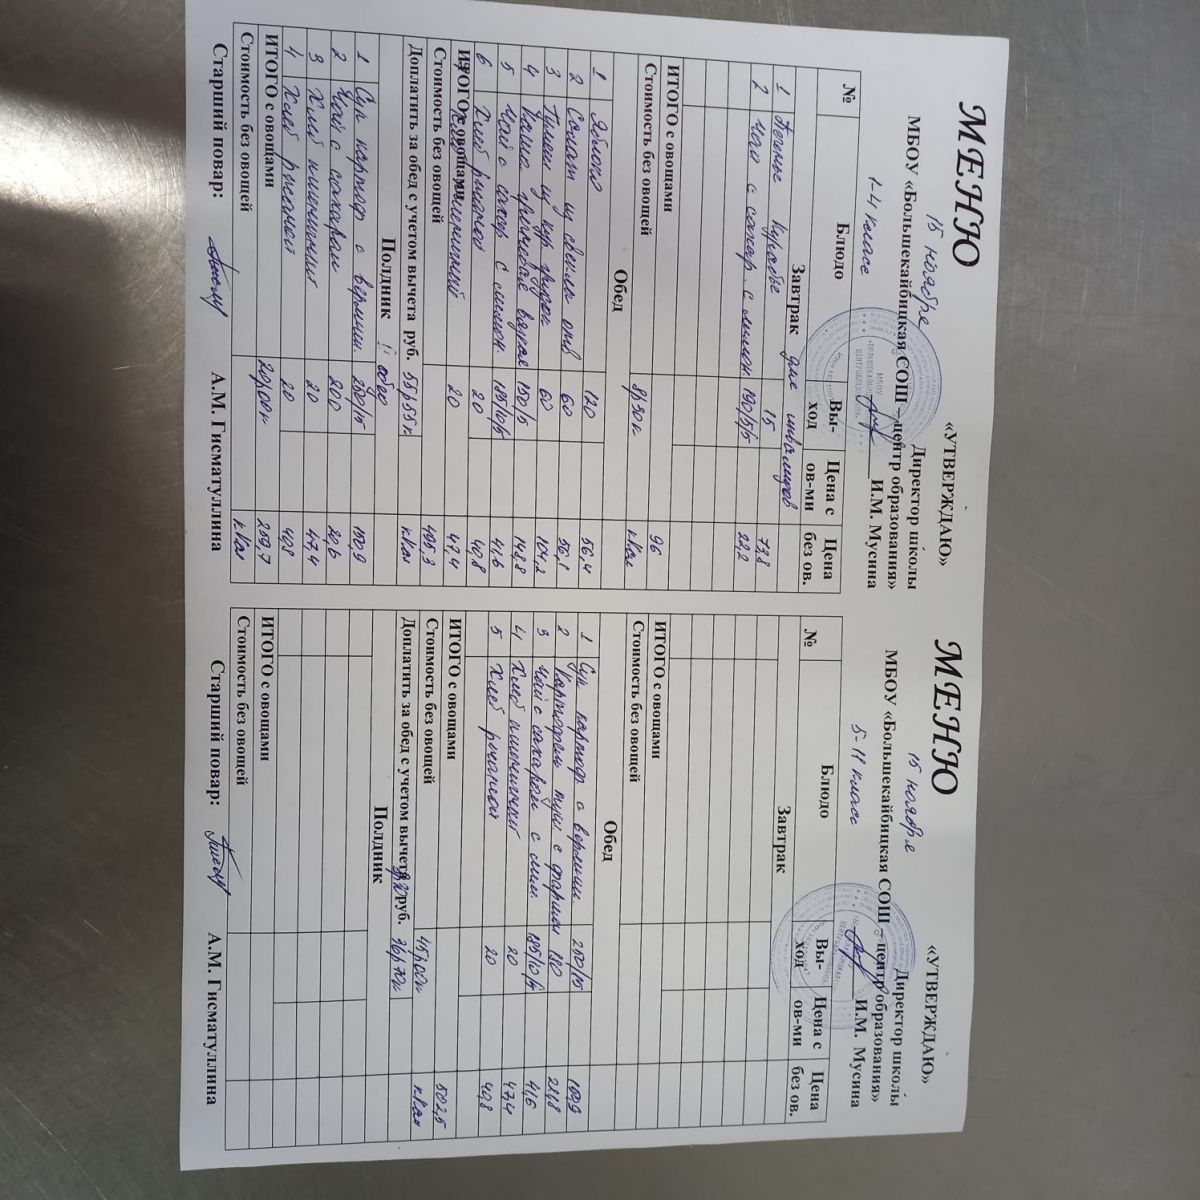 МЕНЮ
«УТВЕРЖДАЮ»
Директор школы
МБОУ «Большекайбицкая СОШ – центр образования»
15 ноября
И.М. Мусина
1-4 класс
№ Блюдо Вы-ход Цена с ов-ми Цена без ов.
Завтрак для инвалидов
1 Печенье курабье 15 73,8
2 Чай с сахар. с лимон. 190/5/5 22,2
ИТОГО с овощами 96
Стоимость без овощей 8р30к ккал
Обед
1 Яблоко 120 56,4
2 Салат из свеклы отв 60 56,1
3 60 104,2
4 Каша вязкая 150/5 148,8
5 Чай с сахар с лимон. 185/10/5 41,6
6 Хлеб ржаной 20 40,8
ИТОГО с овощами 20 47,4
Стоимость без овощей 495,3
Доплатить за обед с учетом вычета руб. 55р55к ккал
Полдник обед
1 Суп картоф с вермиш. 250/15 150,9
2 Чай с сахаром 200 20,6
3 Хлеб пшеничный 20 47,4
4 Хлеб ржаной 20 40,8
ИТОГО с овощами 20р00к 259,7
Стоимость без овощей ккал
Старший повар: А.М. Гисматуллина
МЕНЮ
«УТВЕРЖДАЮ»
Директор школы
МБОУ «Большекайбицкая СОШ – центр образования»
15 ноября
И.М. Мусина
5-11 класс
№ Блюдо Вы-ход Цена с ов-ми Цена без ов.
Завтрак
ИТОГО с овощами
Стоимость без овощей
Обед
1 Суп картоф с вермиш. 250/15
2 Картофель туш с фаршем 180 211,8
3 Чай с сахаром с лим. 185/10/5 41,6
4 Хлеб пшеничный 20 47,4
5 Хлеб ржаной 20 40,8
ИТОГО с овощами 502,5
Стоимость без овощей 45р00к ккал
Доплатить за обед с учетом вычета руб. 36р70к
Полдник
ИТОГО с овощами
Стоимость без овощей
Старший повар: А.М. Гисматуллина